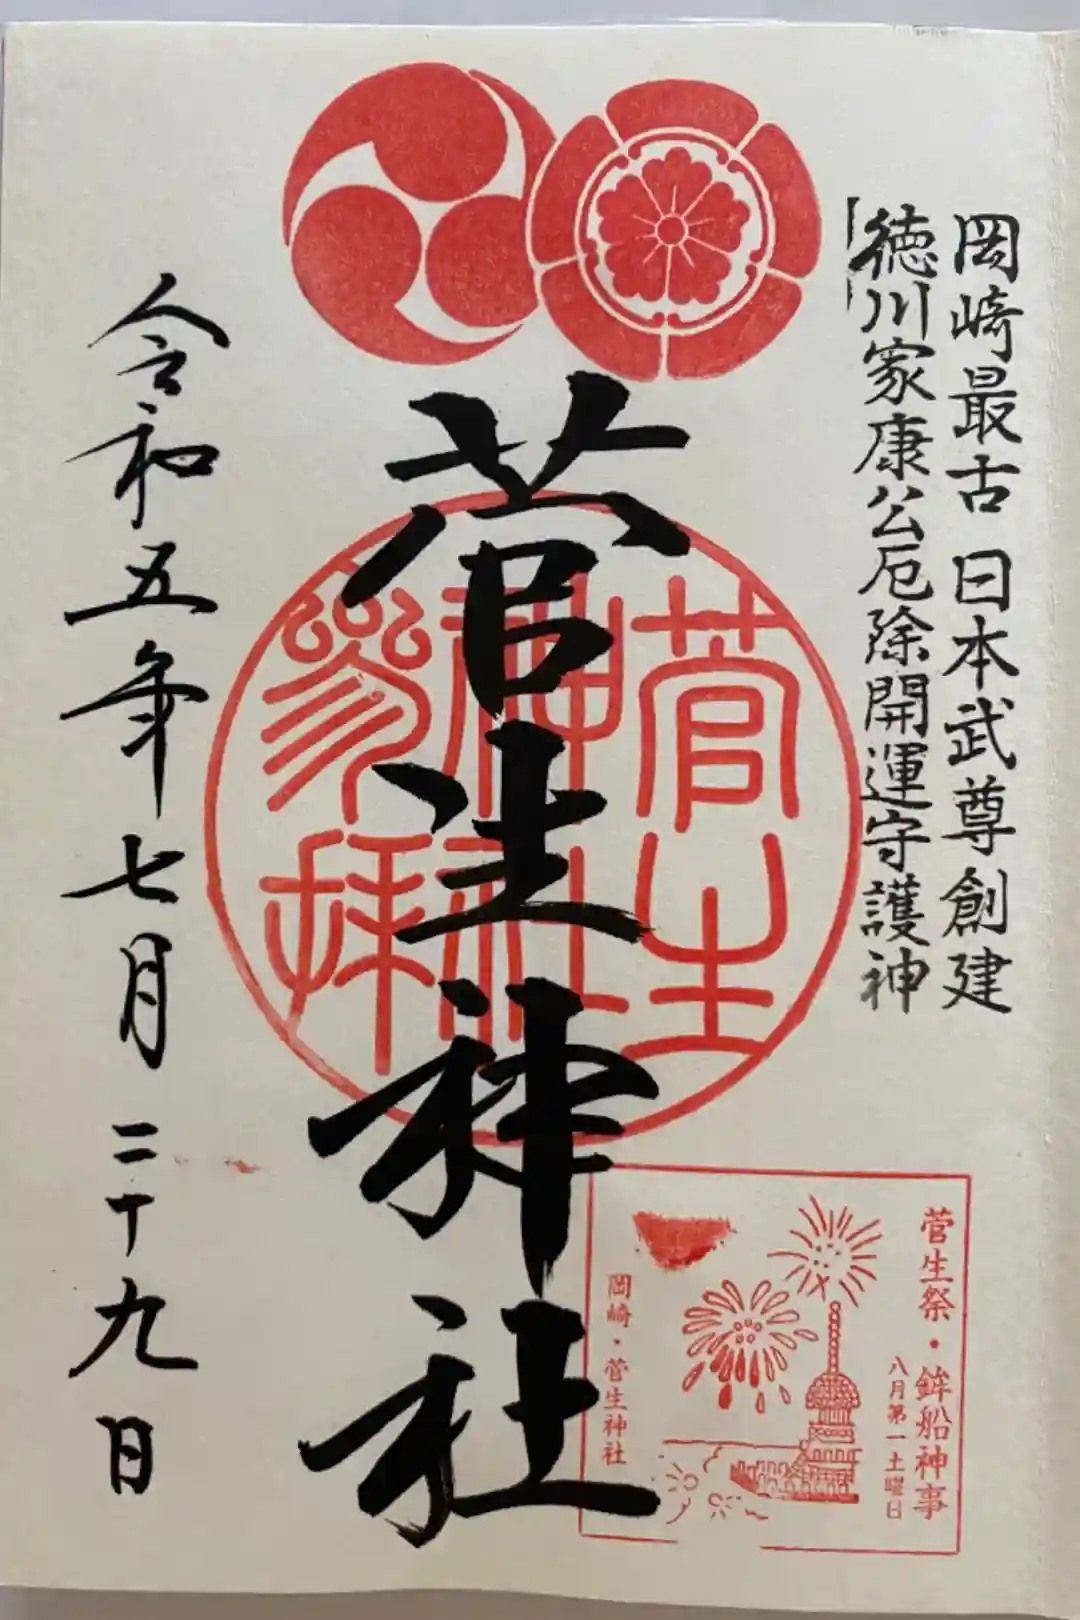 岡崎最古 日本武尊創建
徳川家康公厄除開運守護神
菅生神社
菅生
神社
参拝
令和五年七月二十九日
菅生祭・鉾船神事
八月第一土曜日
岡崎・菅生神社